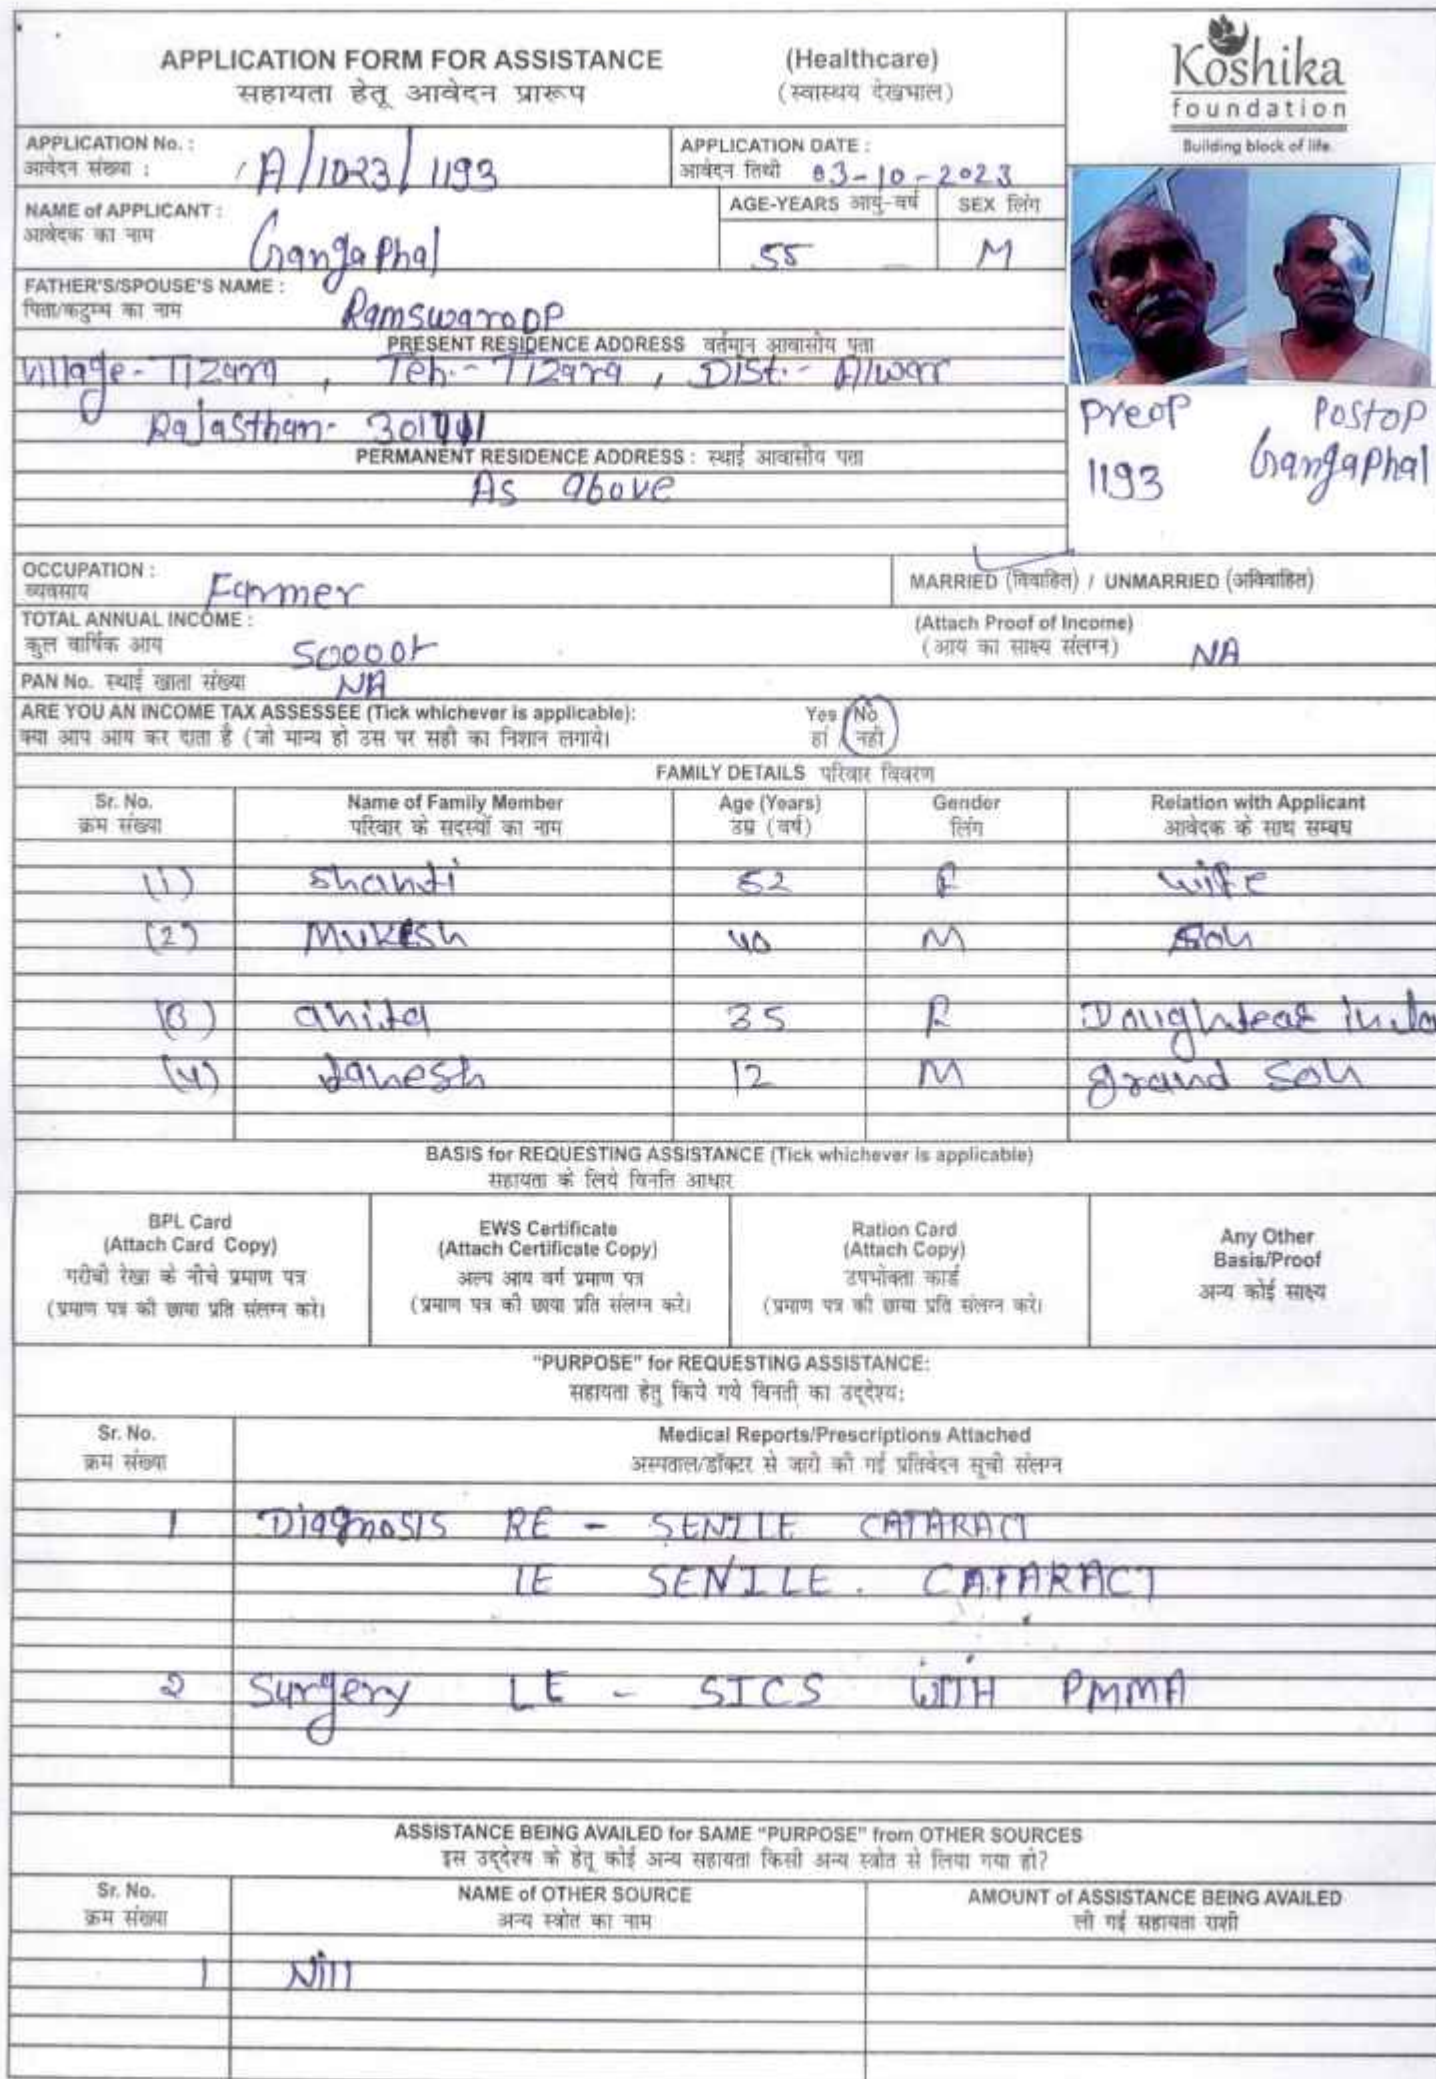 APPLICATION FORM FOR ASSISTANCE (Healthcare)
सहायता हेतू आवेदन प्रारूप (स्वास्थय देखभाल)
Koshika
foundation
Building block of life.
APPLICATION No. : A/1023/1193 APPLICATION DATE :
आवेदन संख्या : आवेदन तिथी 03-10-2023
NAME of APPLICANT : AGE-YEARS आयु-वर्ष SEX लिंग
आवेदक का नाम Gangaphal 55 M
FATHER'S/SPOUSE'S NAME :
पिता/कटुम्ब का नाम Ramswaroop
PRESENT RESIDENCE ADDRESS वर्तमान आवासीय पता
Village- Tizara , Teh.- Tizara , Dist.- Alwar
Rajasthan-
Preop Postop
1193 Gangaphal
PERMANENT RESIDENCE ADDRESS : स्थाई आवासीय पता
As above
OCCUPATION :
व्यवसाय Farmer
MARRIED (विवाहित) / UNMARRIED (अविवाहित)
TOTAL ANNUAL INCOME : (Attach Proof of Income)
कुल वार्षिक आय 50000/- (आय का साक्ष्य संलग्न) NA
PAN No. स्थाई खाता संख्या NA
ARE YOU AN INCOME TAX ASSESSEE (Tick whichever is applicable): Yes / No
क्या आप आय कर दाता है (जो मान्य हो उस पर सही का निशान लगाये। हां / नही
FAMILY DETAILS परिवार विवरण
Sr. No. Name of Family Member Age (Years) Gender Relation with Applicant
क्रम संख्या परिवार के सदस्यों का नाम उम्र (वर्ष) लिंग आवेदक के साथ सम्बध
(1) Shanti 52 F wife
(2) Mukesh 40 M Son
(3) anita 35 F
(4) 12 M grand son
BASIS for REQUESTING ASSISTANCE (Tick whichever is applicable)
सहायता के लिये विनति आधार
BPL Card
(Attach Card Copy)
गरीबी रेखा के नीचे प्रमाण पत्र
(प्रमाण पत्र की छाया प्रति संलग्न करे।
EWS Certificate
(Attach Certificate Copy)
अल्प आय वर्ग प्रमाण पत्र
(प्रमाण पत्र की छाया प्रति संलग्न करे।
Ration Card
(Attach Copy)
उपभोक्ता कार्ड
(प्रमाण पत्र की छाया प्रति संलग्न करे।
Any Other
Basis/Proof
अन्य कोई साक्ष्य
"PURPOSE" for REQUESTING ASSISTANCE:
सहायता हेतु किये गये विनती का उद्देश्य:
Sr. No. Medical Reports/Prescriptions Attached
क्रम संख्या अस्पताल/डॉक्टर से जारी की गई प्रतिवेदन सूची संलग्न
1 Diagnosis RE - SENILE CATARACT
LE SENILE. CATARACT
2 Surgery LE - SICS WITH PMMA
ASSISTANCE BEING AVAILED for SAME "PURPOSE" from OTHER SOURCES
इस उद्देश्य के हेतू कोई अन्य सहायता किसी अन्य स्त्रोत से लिया गया हो?
Sr. No. NAME of OTHER SOURCE AMOUNT of ASSISTANCE BEING AVAILED
क्रम संख्या अन्य स्त्रोत का नाम ली गई सहायता राशी
1 Nill